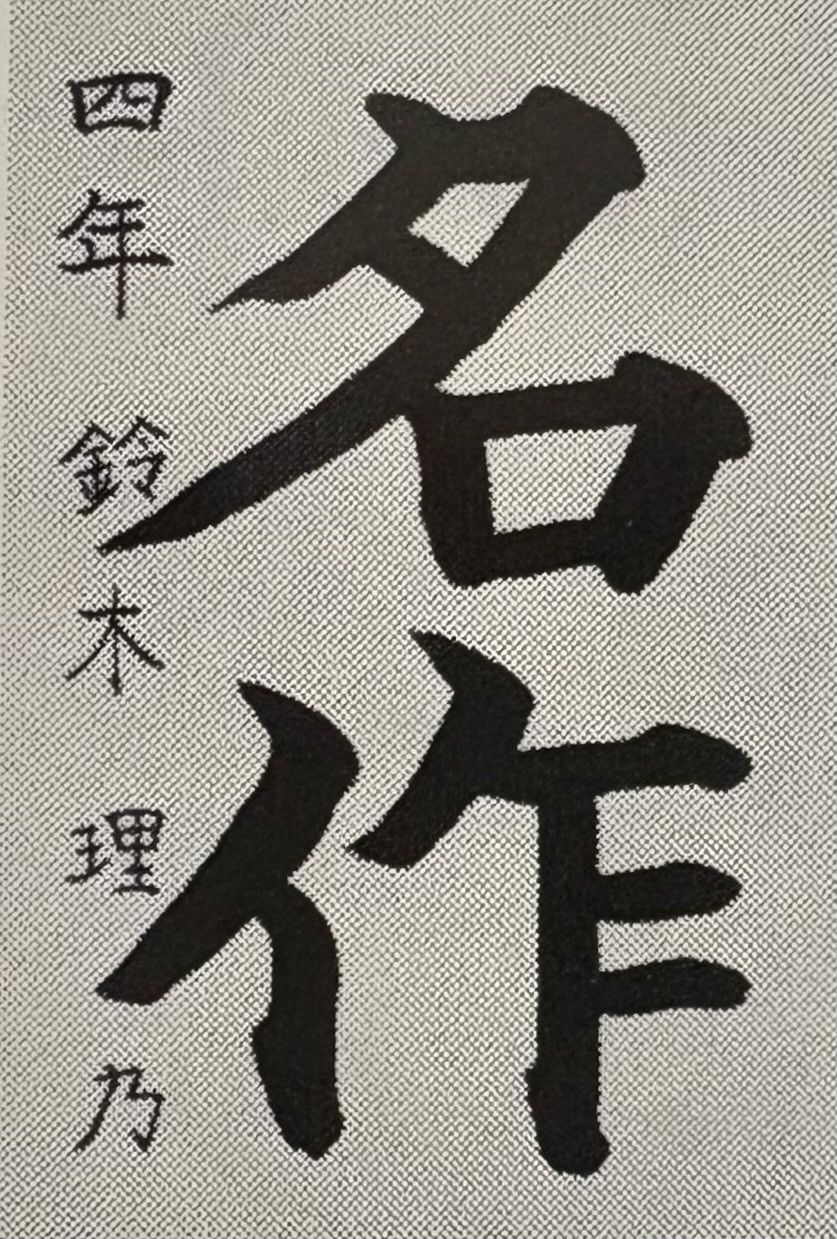 名作
四年 鈴木 理乃